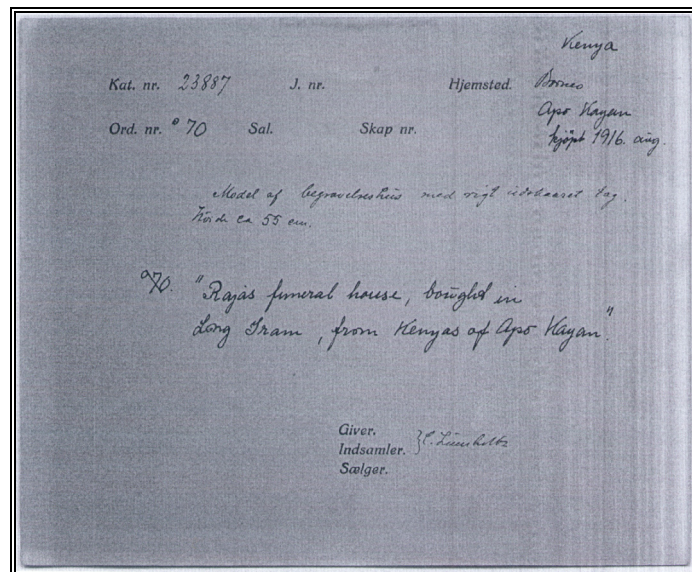 Kenya
Kat. nr. 23887 J. nr. Hjemsted. Borneo
Apo Kayan
Ord. nr. a 70 Sal. Skap nr. kjöpt 1916. aug.
Model af begravelseshus med rigt udskaaret tag.
Höide ca 55 cm.
a70. "Rajas funeral house, bought in
Long Iram, from Kenyas of Apo Kayan".
Giver.
Indsamler. } C. Lumholtz
Sælger.